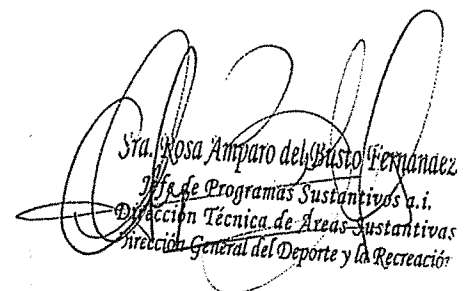 Sra. Rosa Amparo del Busto Fernandez
Jefe de Programas Sustantivos a.i.
Dirección Técnica de Áreas Sustantivas
Dirección General del Deporte y la Recreación